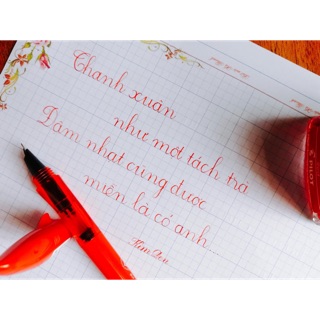 Thanh xuân
như một tách trà
Đậm nhạt cũng được
miễn là có anh...
PILOT